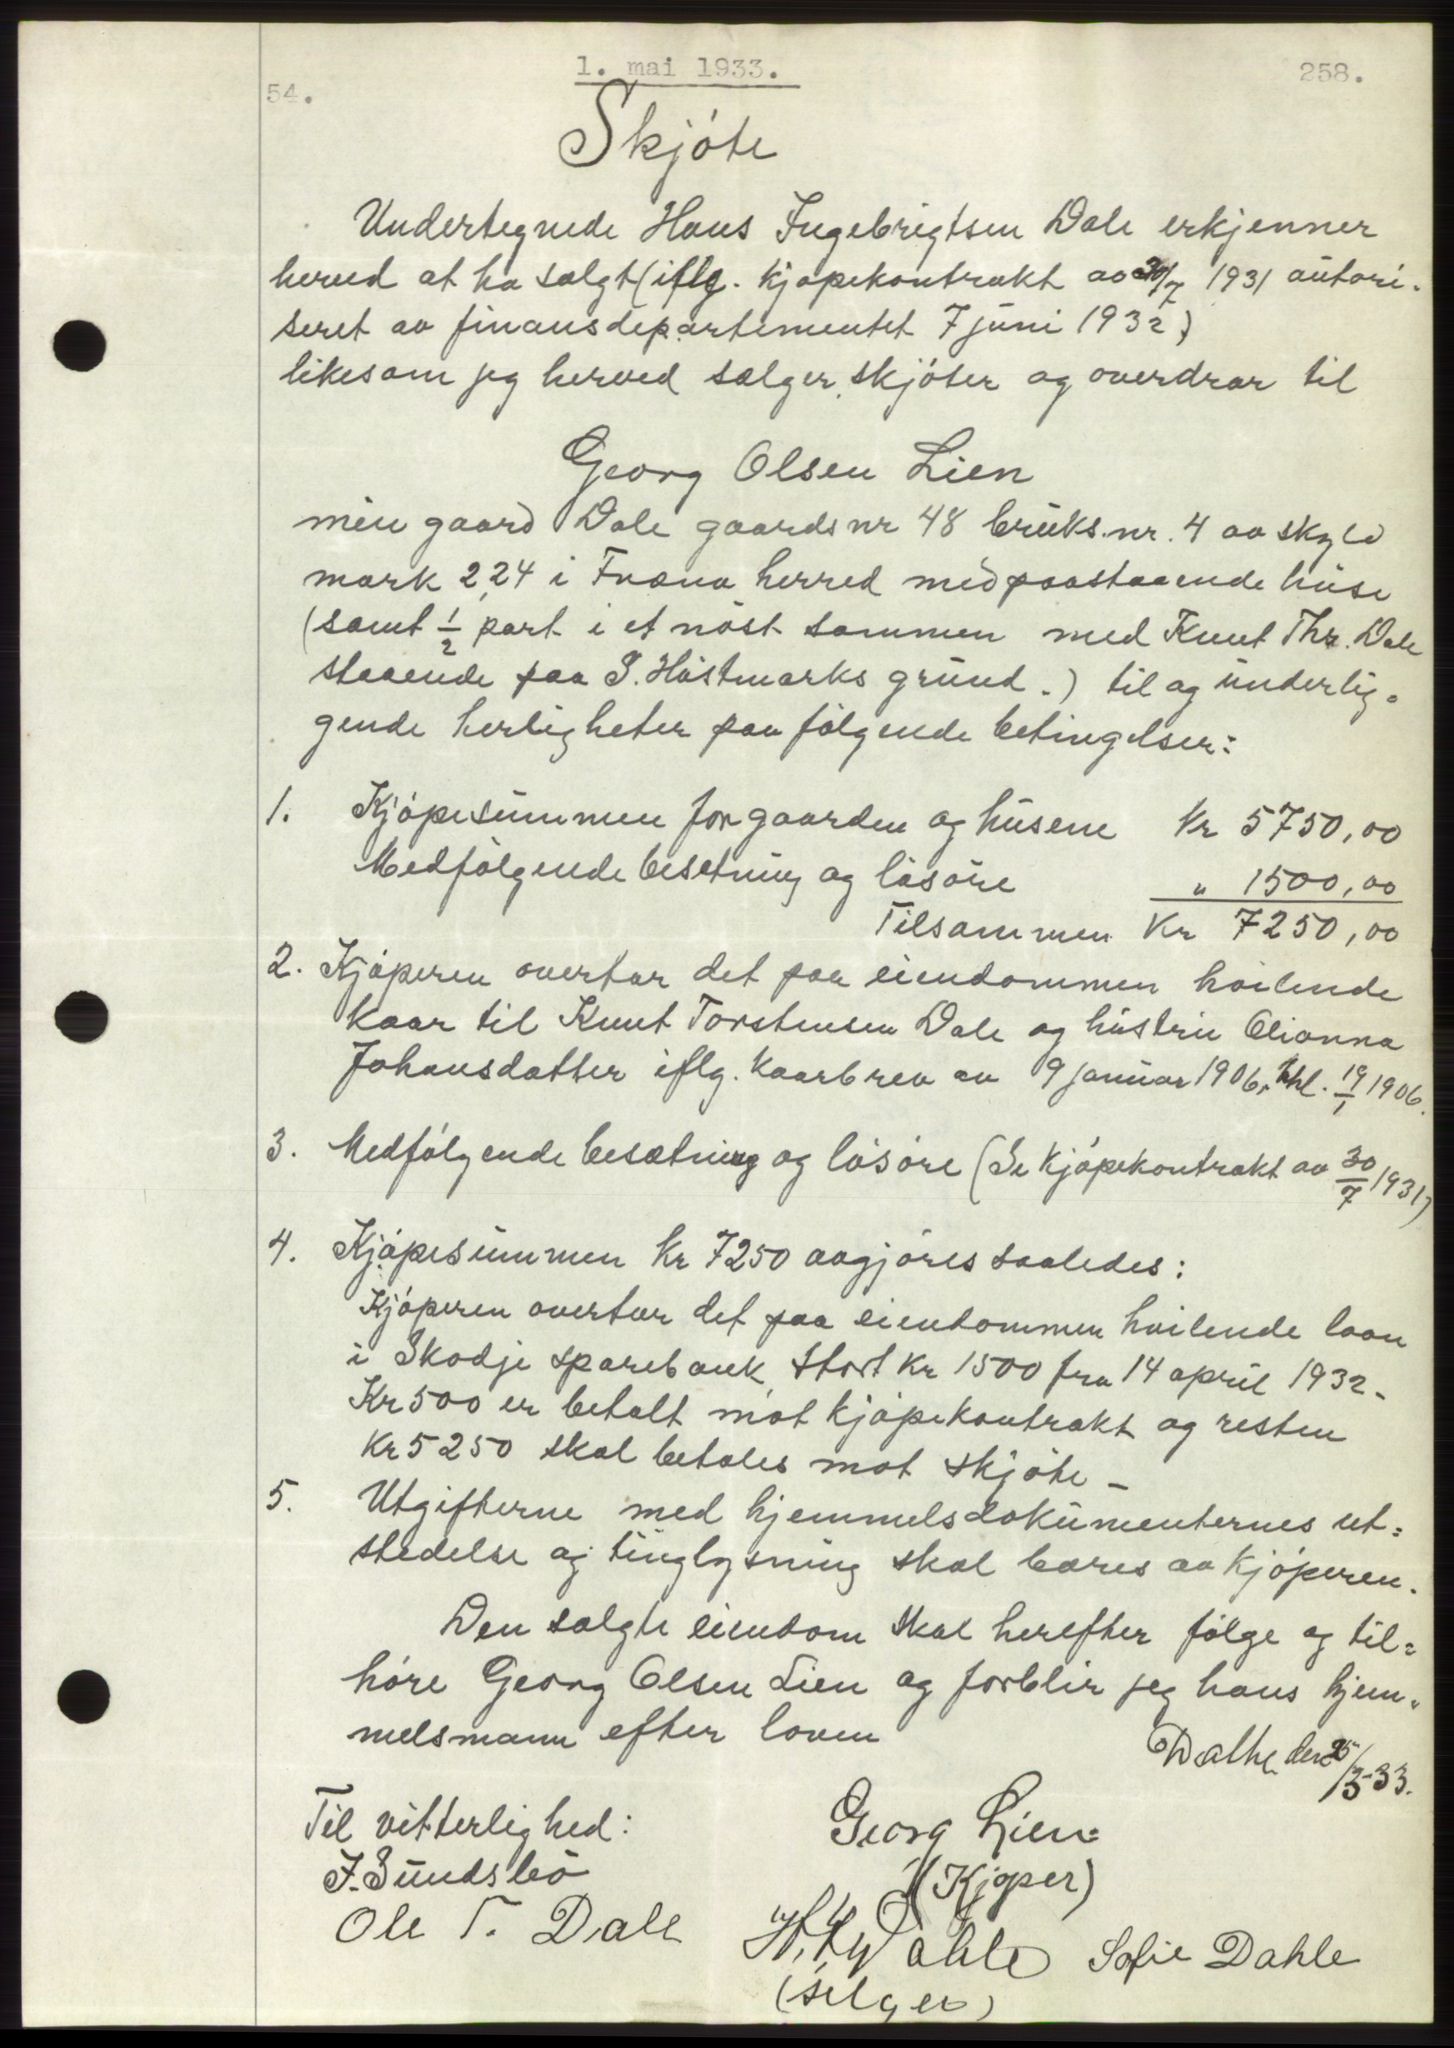 1. mai 1933.
258.
54.
Skjóte
Undertegnede Hans Ingebrigtsen Dale erkjenner
herved at ha sælgt (iflg. kjøpekontrakt av 30/7 1931 autori-
seret av finansdepartementet 7 juni 1932)
likesom jeg herved sælger, skjöter og overdrar til
Georg Olsen Lien
min gaard Dale gaardsnr 48 bruks.nr. 4 av skyld
mark 2,24 i Fræna herred med paastaaende huse
(samt 1/2 part i et nöst sammen med Knut Thr. Dale
staaende paa P. Hästmarks grund.) til og underlig-
gende herligheter paa fölgende betingelser:
1. Kjöpesummen for gaarden og husene Kr 5750,00
Medfölgende besetning og lösöre " 1500,00
Tilsammen Kr 7250,00
2. Kjöperen overtar det paa eiendommen hvilende
kaar til Knut Torstensen Dale og hustru Olianna
Johansdatter iflg. kaarbrev av 9 januar 1906, thl. 19/1 1906.
3. Medfölgende besætning og lösöre (Se kjöpekontrakt av 30/7 1931)
4. Kjöpesummen Kr 7250 avgjöres saaledes:
Kjöperen overtar det paa eiendommen hvilende laan
i Skodje sparebank, stort Kr 1500 fra 14 april 1932-
Kr 500 er betalt mot kjöpekontrakt og resten
Kr 5250 skal betales mot skjöte –
5. Utgifterne med hjemmelsdokumenternes ut=
stedelse og tinglysning skal bæres av kjöperen.
Den sælgte eiendom skal herefter fölge og til=
höre Georg Olsen Lien og forblir jeg hans hjem-
melsmann efter loven
Dathe den 25/3-33.
Til vitterlighed:
Georg Lien
J. Sundsbö
(Kjøper)
Ole T. Dale
Dahle Sofie Dahle
(selger)